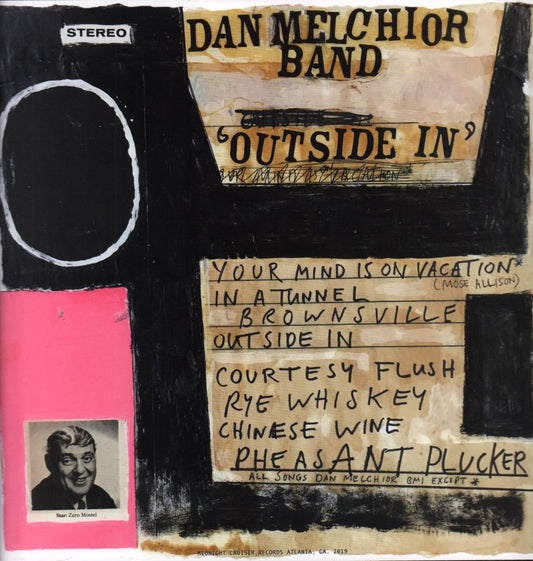 STEREO
DAN MELCHIOR
BAND
'OUTSIDE IN'
YOUR MIND IS ON VACATION*
(MOSE ALLISON)
IN A TUNNEL
BROWNSVILLE
OUTSIDE IN
COURTESY FLUSH
RYE WHISKEY
CHINESE WINE
PHEASANT PLUCKER
ALL SONGS DAN MELCHIOR BMI EXCIPT *
Star: Zero Mostel
MIDNIGHT CRUISER RECORDS ATLANTA, GA. 2019